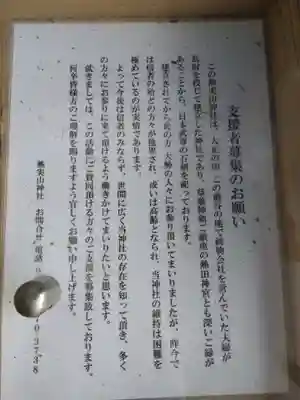 支援者募集のお願い
この熱実山神社は、大正の頃、この
が
私財を投じて建立した神社であり、草薙神剣ご鎮座の熱田神宮とも深いご縁が
あることから、日本武尊の石碑を祀っております。
建立されてから此の方、大勢の人々にお参り頂いてまいりましたが、昨今で
は信者の殆どの方々が他界され、或いは高齢となられ、当神社の維持は困難を
極めているのが実情であります。
よって今後は信者のみならず、世間に広く当神社の存在を知って頂き、多く
の方々にお参りに来て頂けるよう働きかけてまいりたいと思います。
就きましては、この活動にご賛同頂ける方々のご支援を募集致しております。
何卒皆様方のご理解を賜りますよう宜しくお願い申し上げます。
熱実山神社 お問合せ 電話
3738